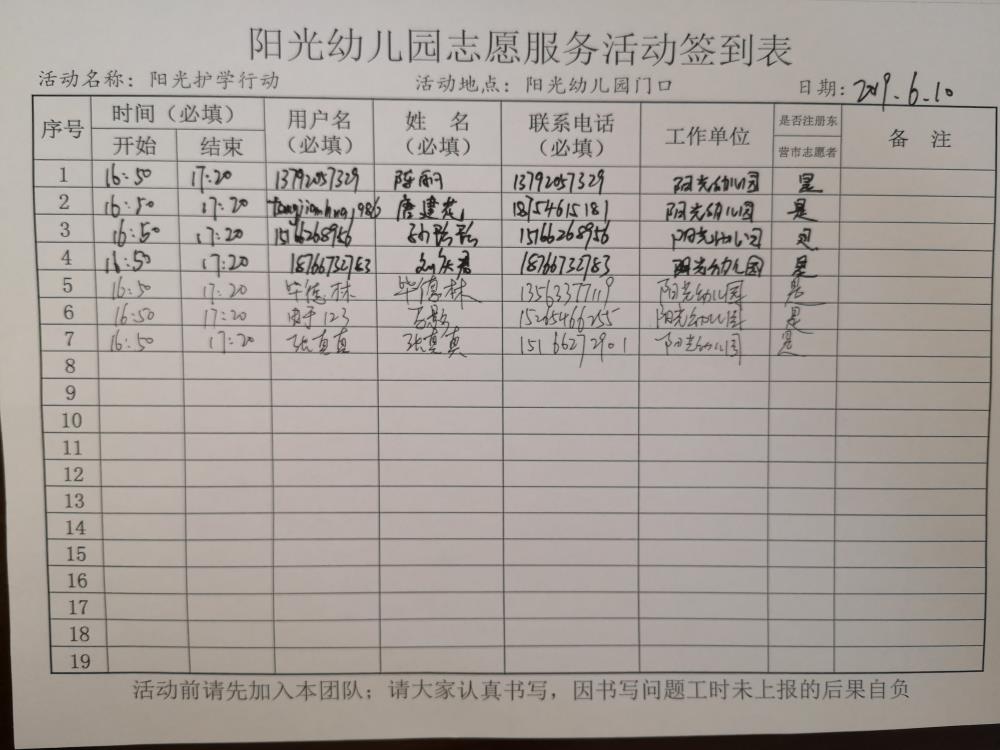 阳光幼儿园志愿服务活动签到表
活动名称：阳光护学行动 活动地点：阳光幼儿园门口 日期：2019.6.10
序号 时间（必填） 用户名（必填） 姓 名（必填） 联系电话（必填） 工作单位 是否注册东营市志愿者 备 注
开始 结束
1 16:50 17:20 13792057329 陈丽 13792057329 阳光幼儿园 是
2 16:50 17:20 唐建花 18754615181 阳光幼儿园 是
3 16:50 17:20 15166268956 15166268956 阳光幼儿园 是
4 16:50 17:20 18766732783 18766732783 阳光幼儿园 是
5 16:50 17:20 毕德林 毕德林 13563377119 阳光幼儿园 是
6 16:50 17:20 15265466255 阳光幼儿园 是
7 16:50 17:20 张真真 张真真 15166272901 阳光幼儿园 是
8
9
10
11
12
13
14
15
16
17
18
19
活动前请先加入本团队；请大家认真书写，因书写问题工时未上报的后果自负